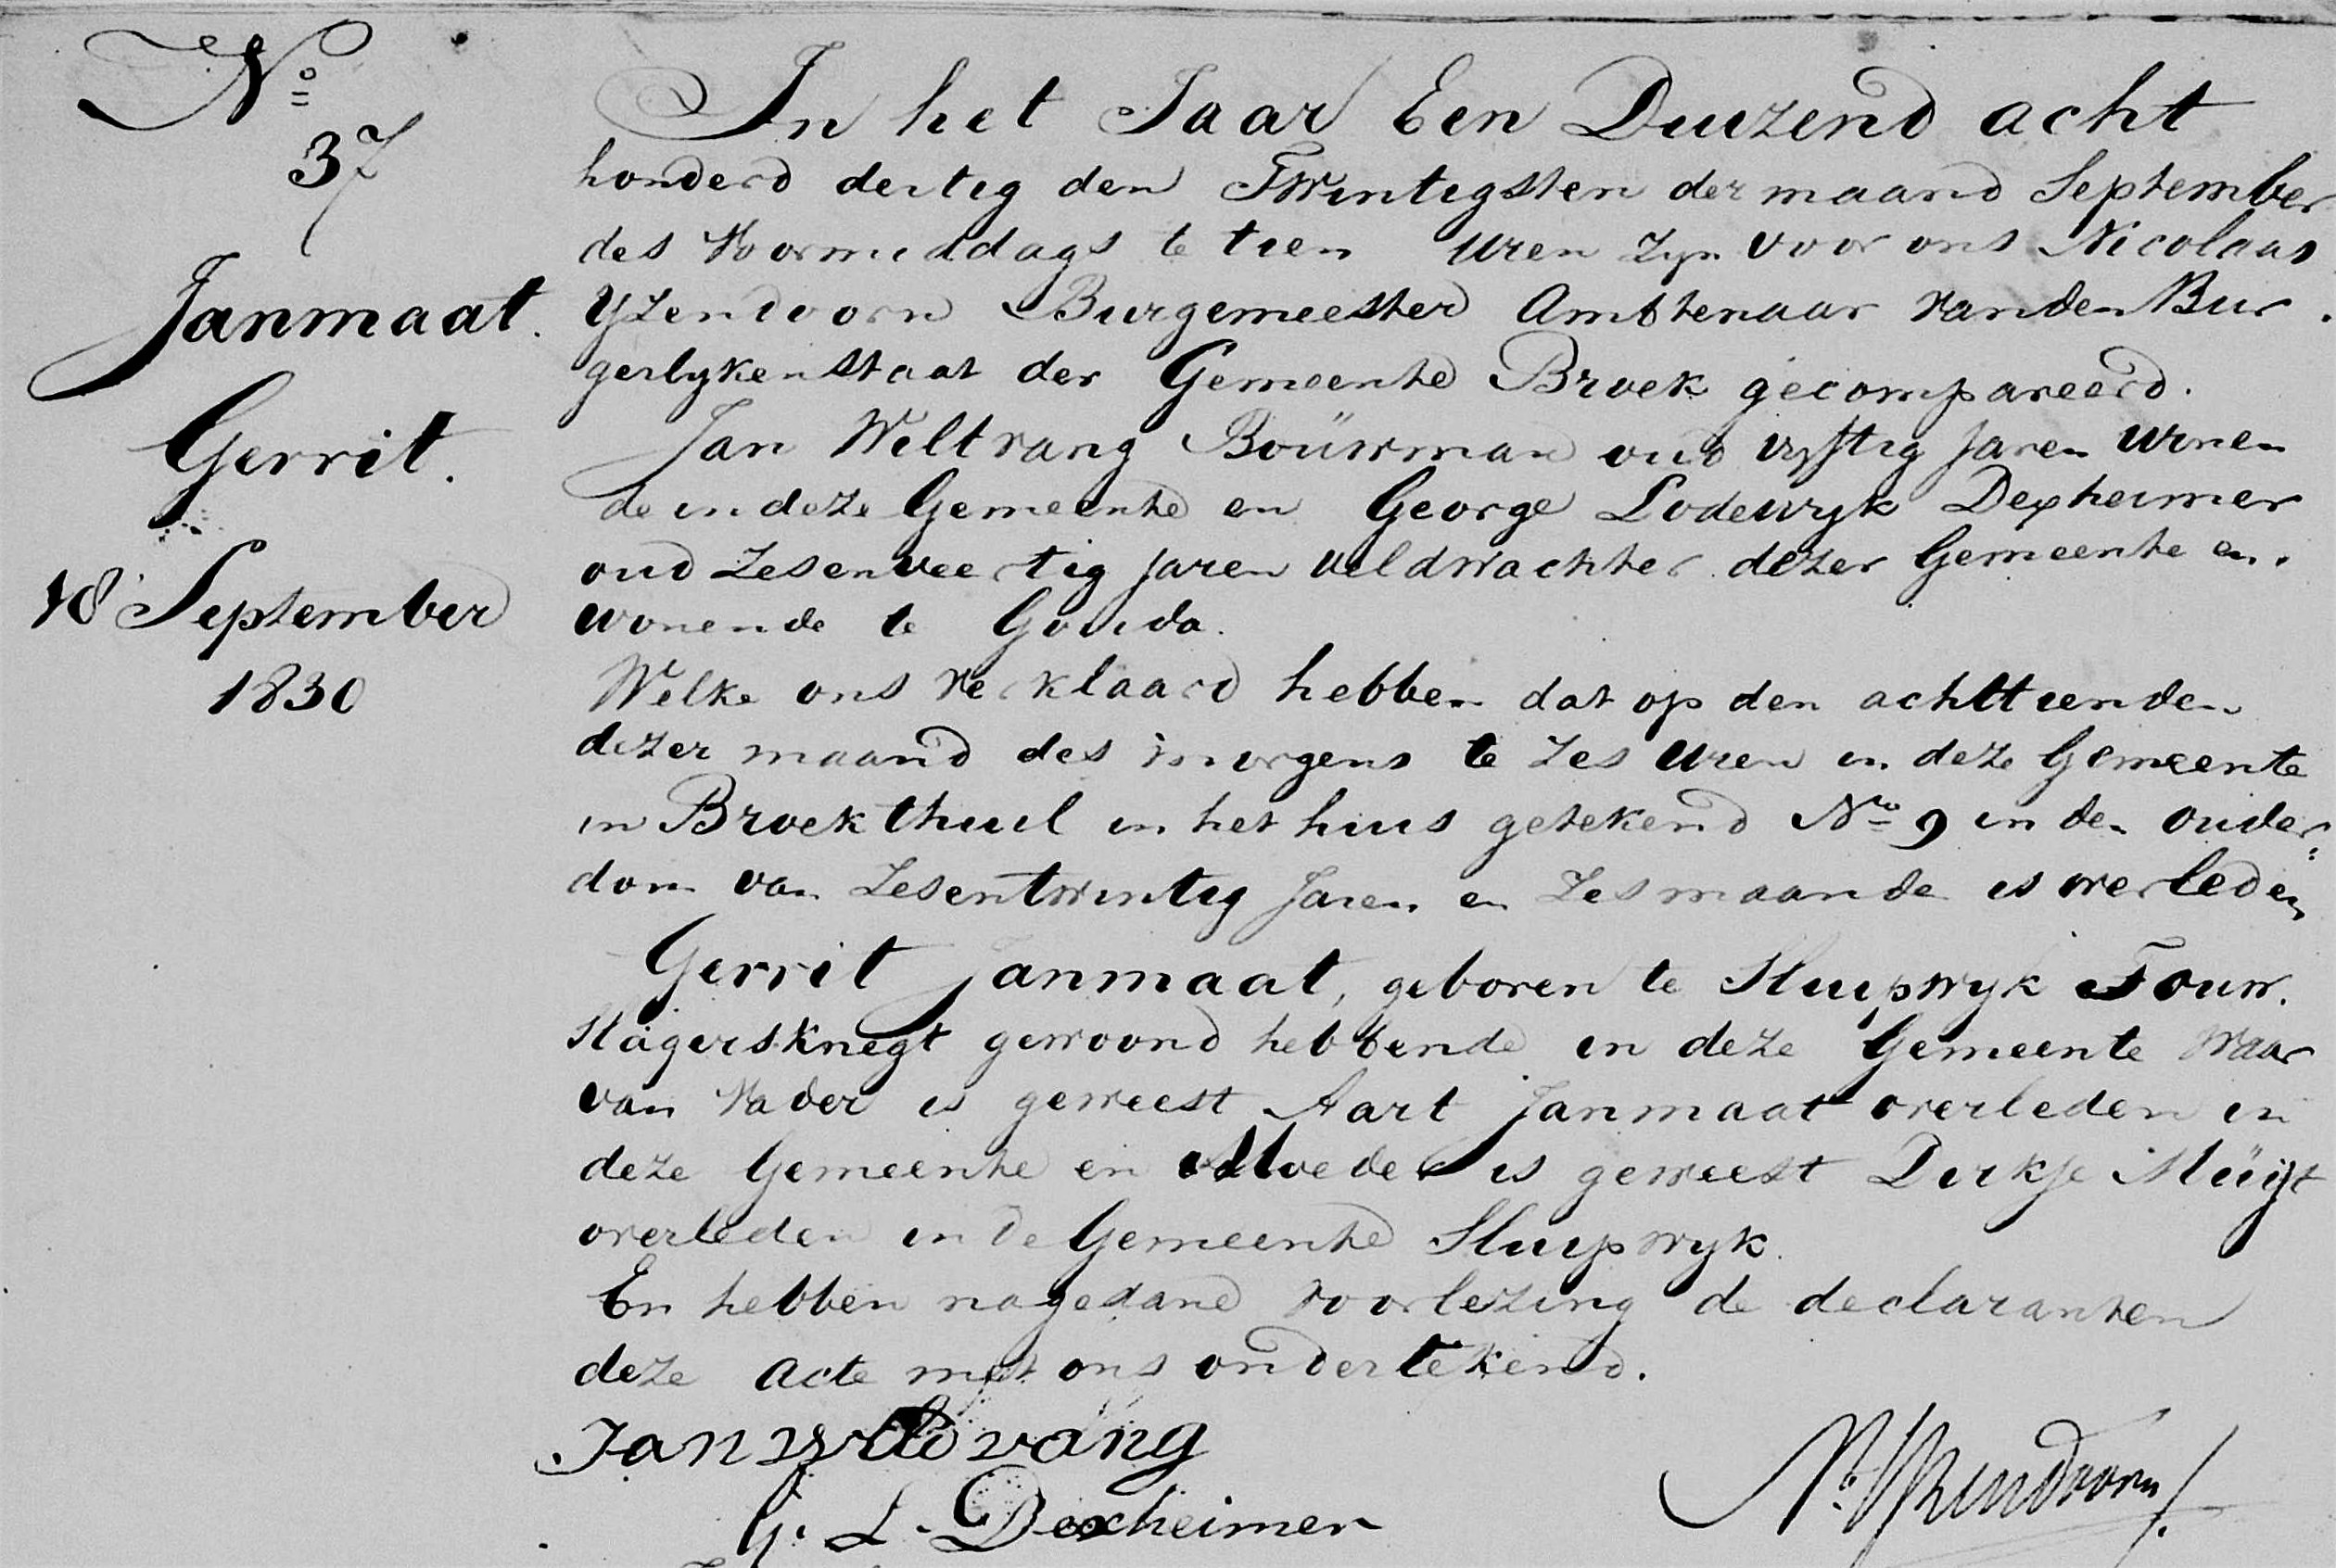 No
37
Janmaat.
Gerrit.
18 September
1830
In het Jaar Een Duizend acht
honderd dertig den Twintigsten der maand September
des Voormiddags te tien Uren zyn voor ons Nicolaas
Yzendoorn Burgemeester Ambtenaar van den Bur.
gerlyken staat der Gemeente Broek gecompareerd.
Jan Weltvang Bouwman oud vyftig Jaren wonen
de in deze Gemeente en George Lodewyk Dexheimer
oud Zesenveertig Jaren veldwachter dezer Gemeente en.
wonende te Gouda.
Welke ons verklaard hebben dat op den achttienden
dezer maand des morgens te Zes Uren in deze Gemeente
in Broek thuil in het huis getekend No 9 in den ouder:
dom van Zesentwintig Jaren en Zes maande is overleden
Gerrit Janmaat, geboren te Sluipwyk Touw.
slagersknegt gewoond hebbende in deze Gemeente waar
van Vader is geweest Aart Janmaat overleden in
deze Gemeente en Moeder is geweest Dirkje
overleden in de Gemeente Sluipwyk.
En hebben na gedane voorlezing de declaranten
deze acte met ons ondertekend.
Jan
G. L. Dexheimer
N. Yzendoorn